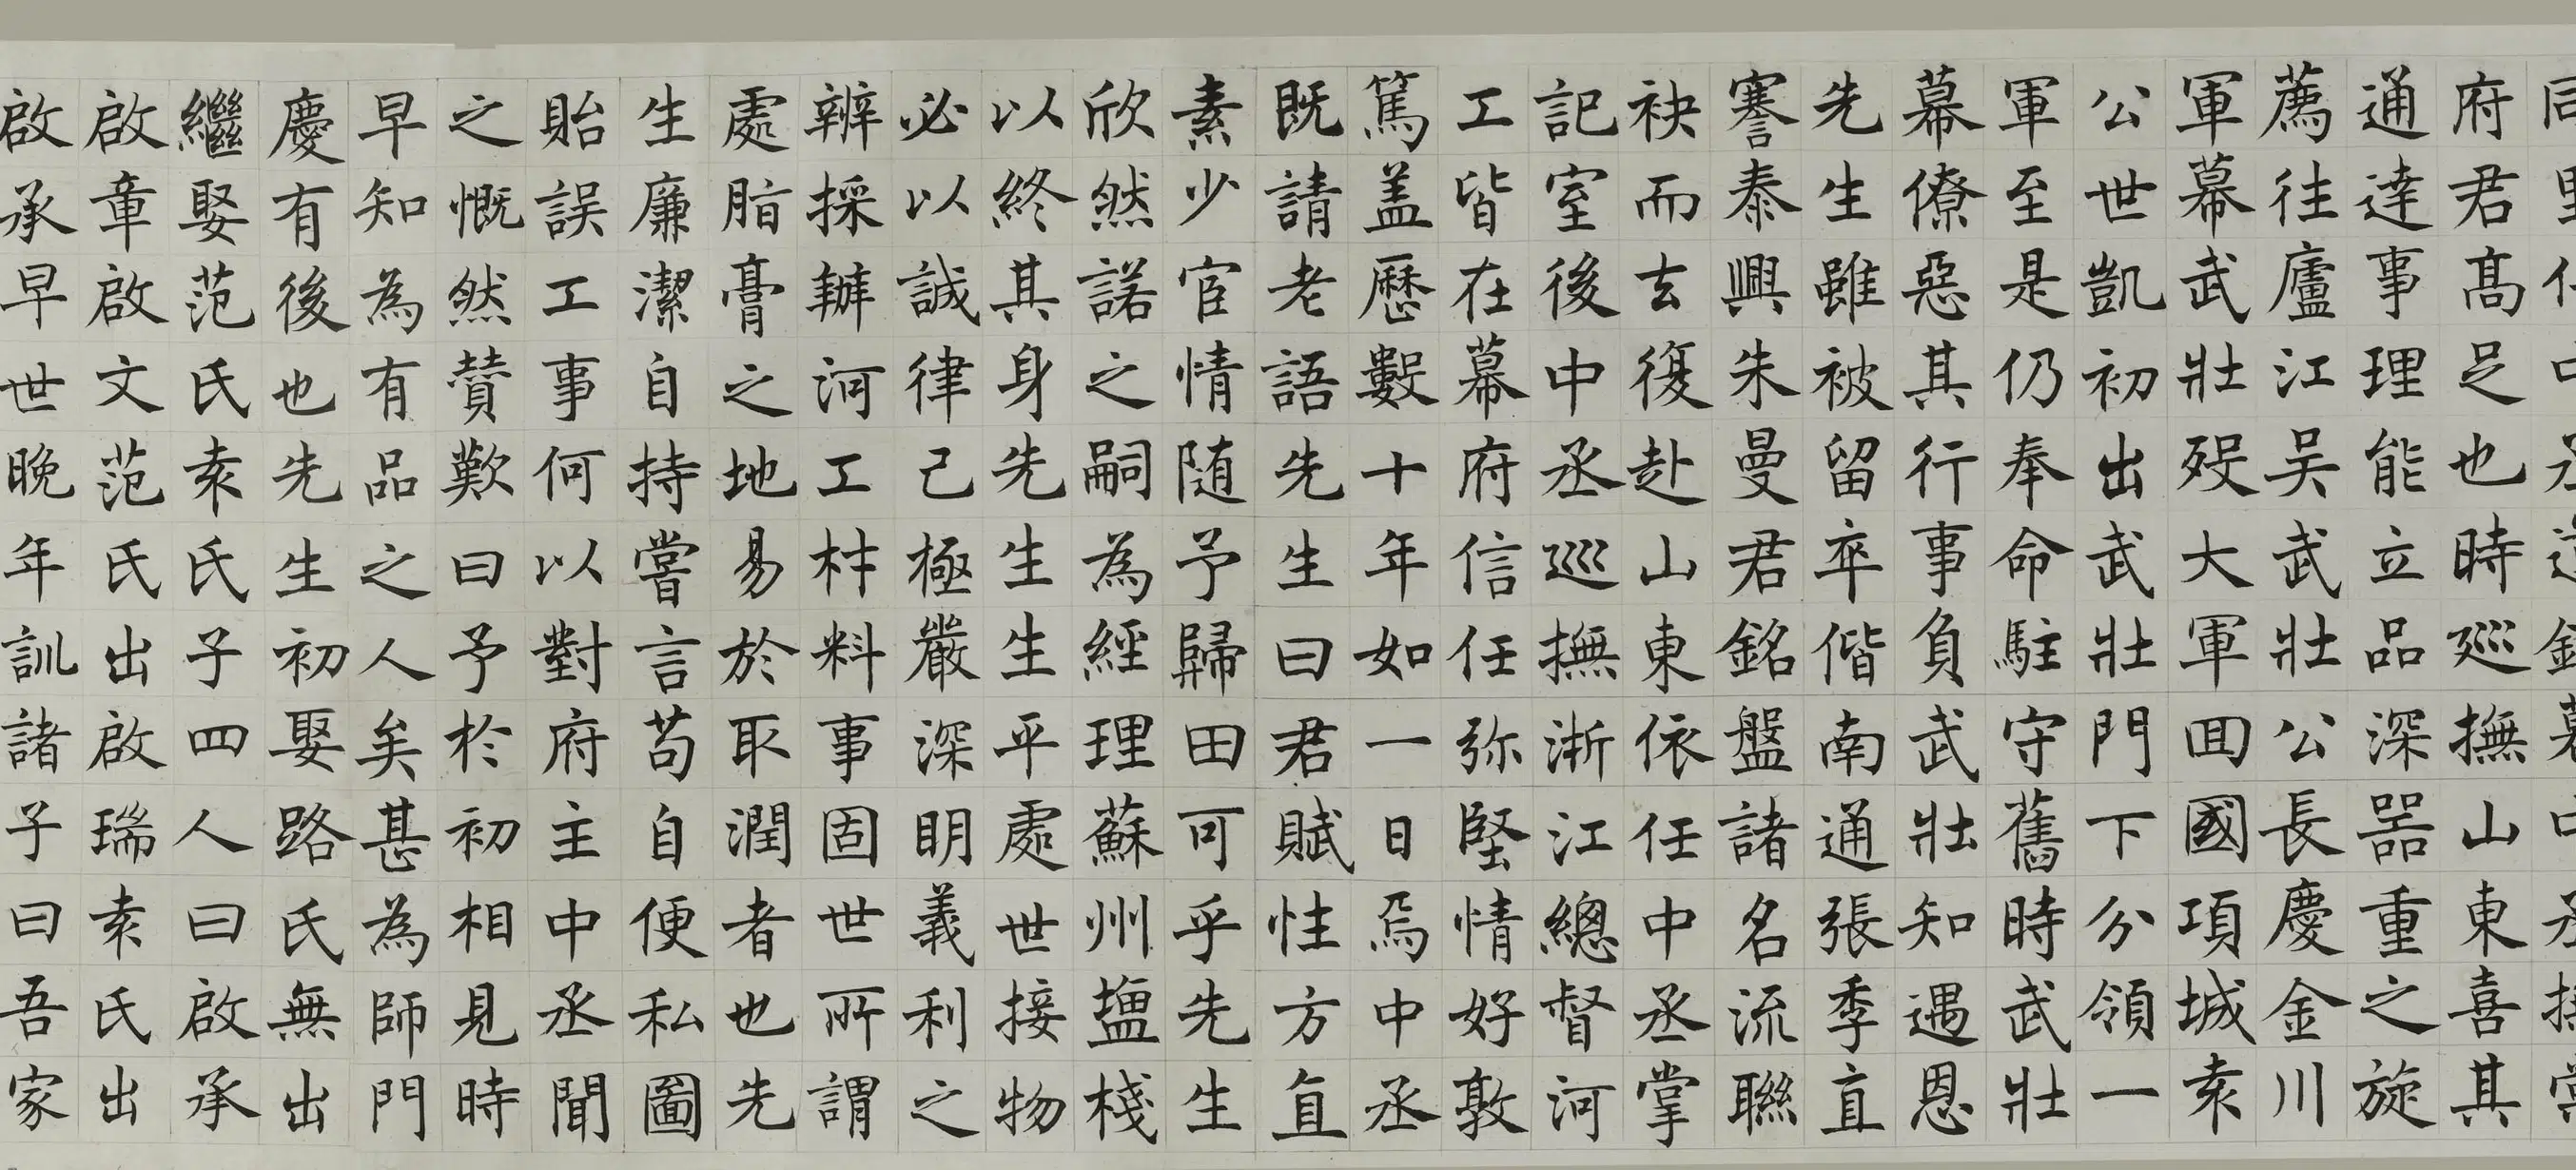 府君高足也時巡撫山東喜其
通達事理能立品深器重之旋
薦往廬江吴武壯公長慶金川
軍幕武壯殁大軍回國項城袁
公世凱初出武壯門下分領一
軍至是仍奉命駐守舊時武壯
幕僚惡其行事負武壯知遇恩
先生雖被留卒偕南通張季直
謇泰興朱曼君銘盤諸名流聯
袂而去復赴山東依任中丞掌
記室後中丞巡撫浙江總督河
工皆在幕府信任弥堅情好敦
篤盖歷數十年如一日焉中丞
既請老語先生曰君賦性方直
素少宦情随予歸田可乎先生
欣然諾之嗣為經理蘇州塩棧
以終其身先生生平處世接物
必以誠律己極嚴深明義利之
辨採辦河工材料事固世所謂
處脂膏之地易於取潤者也先
生廉潔自持嘗言苟自便私圖
貽誤工事何以對府主中丞聞
之慨然贊歎曰予於初相見時
早知為有品之人矣甚為師門
慶有後也先生初娶路氏無出
繼娶范氏袁氏子四人曰啟承
啟章啟文范氏出啟瑞袁氏出
啟承早世晚年訓諸子曰吾家